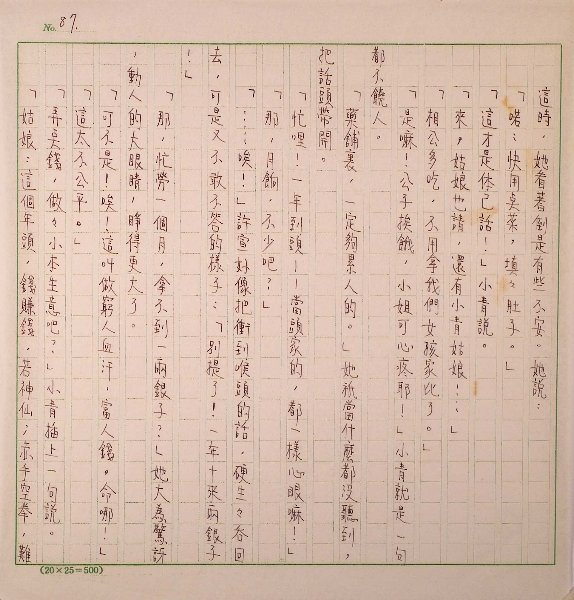 No. 87.
這時,她看著倒是有些不安。她說:
「喏:快用桌菜,填々肚子。」
「這才是体己話!」小青說。
「來,姑娘也請,還有小青姑娘!…」
「相公多吃,不用拿我們女孩家比了。」
「是嘛!公子挨餓,小姐可心疼耶!」小青就是一句
都不饒人。
「藥舖裏,一定夠累人的。」她祇當什麼都沒聽到,
把話頭帶開。
「忙哩!一年到頭——當頭家的,都一樣心眼嘛!」
「那,月餉,不少吧?」
「……唉!」許宣好像把衝到喉頭的話,硬生々吞回
去,可是又不敢不答的樣子:「別提了!一年十來兩銀子
!」
「那,忙勞一個月,拿不到一兩銀子?」她大為驚訝
,動人的大眼睛,睜得更大了。
「可不是!唉!這叫做窮人血汗,富人錢。命哪!」
「這太不公平。」
「弄吳錢,做々小本生意吧?」小青插上一句說。
「姑娘:這個年頭,錢賺錢,若神仙;赤手空拳,難
(20×25=500)